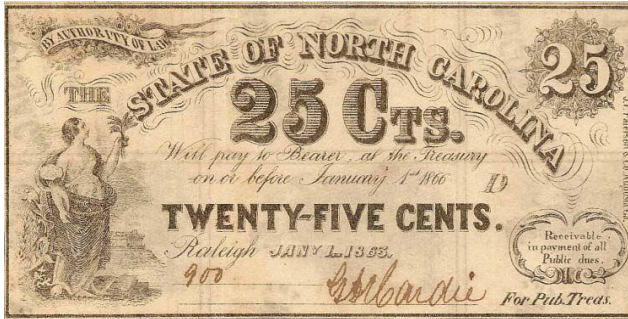 BY AUTHORITY OF LAW
THE STATE OF NORTH CAROLINA
25
25 CTS.
Will pay to Bearer, at the Treasury
on or before January 1st 1866
TWENTY-FIVE CENTS.
Raleigh JANY 1. 1863.
900
Receivable
in payment of all
Public dues.
For Pub. Treas.